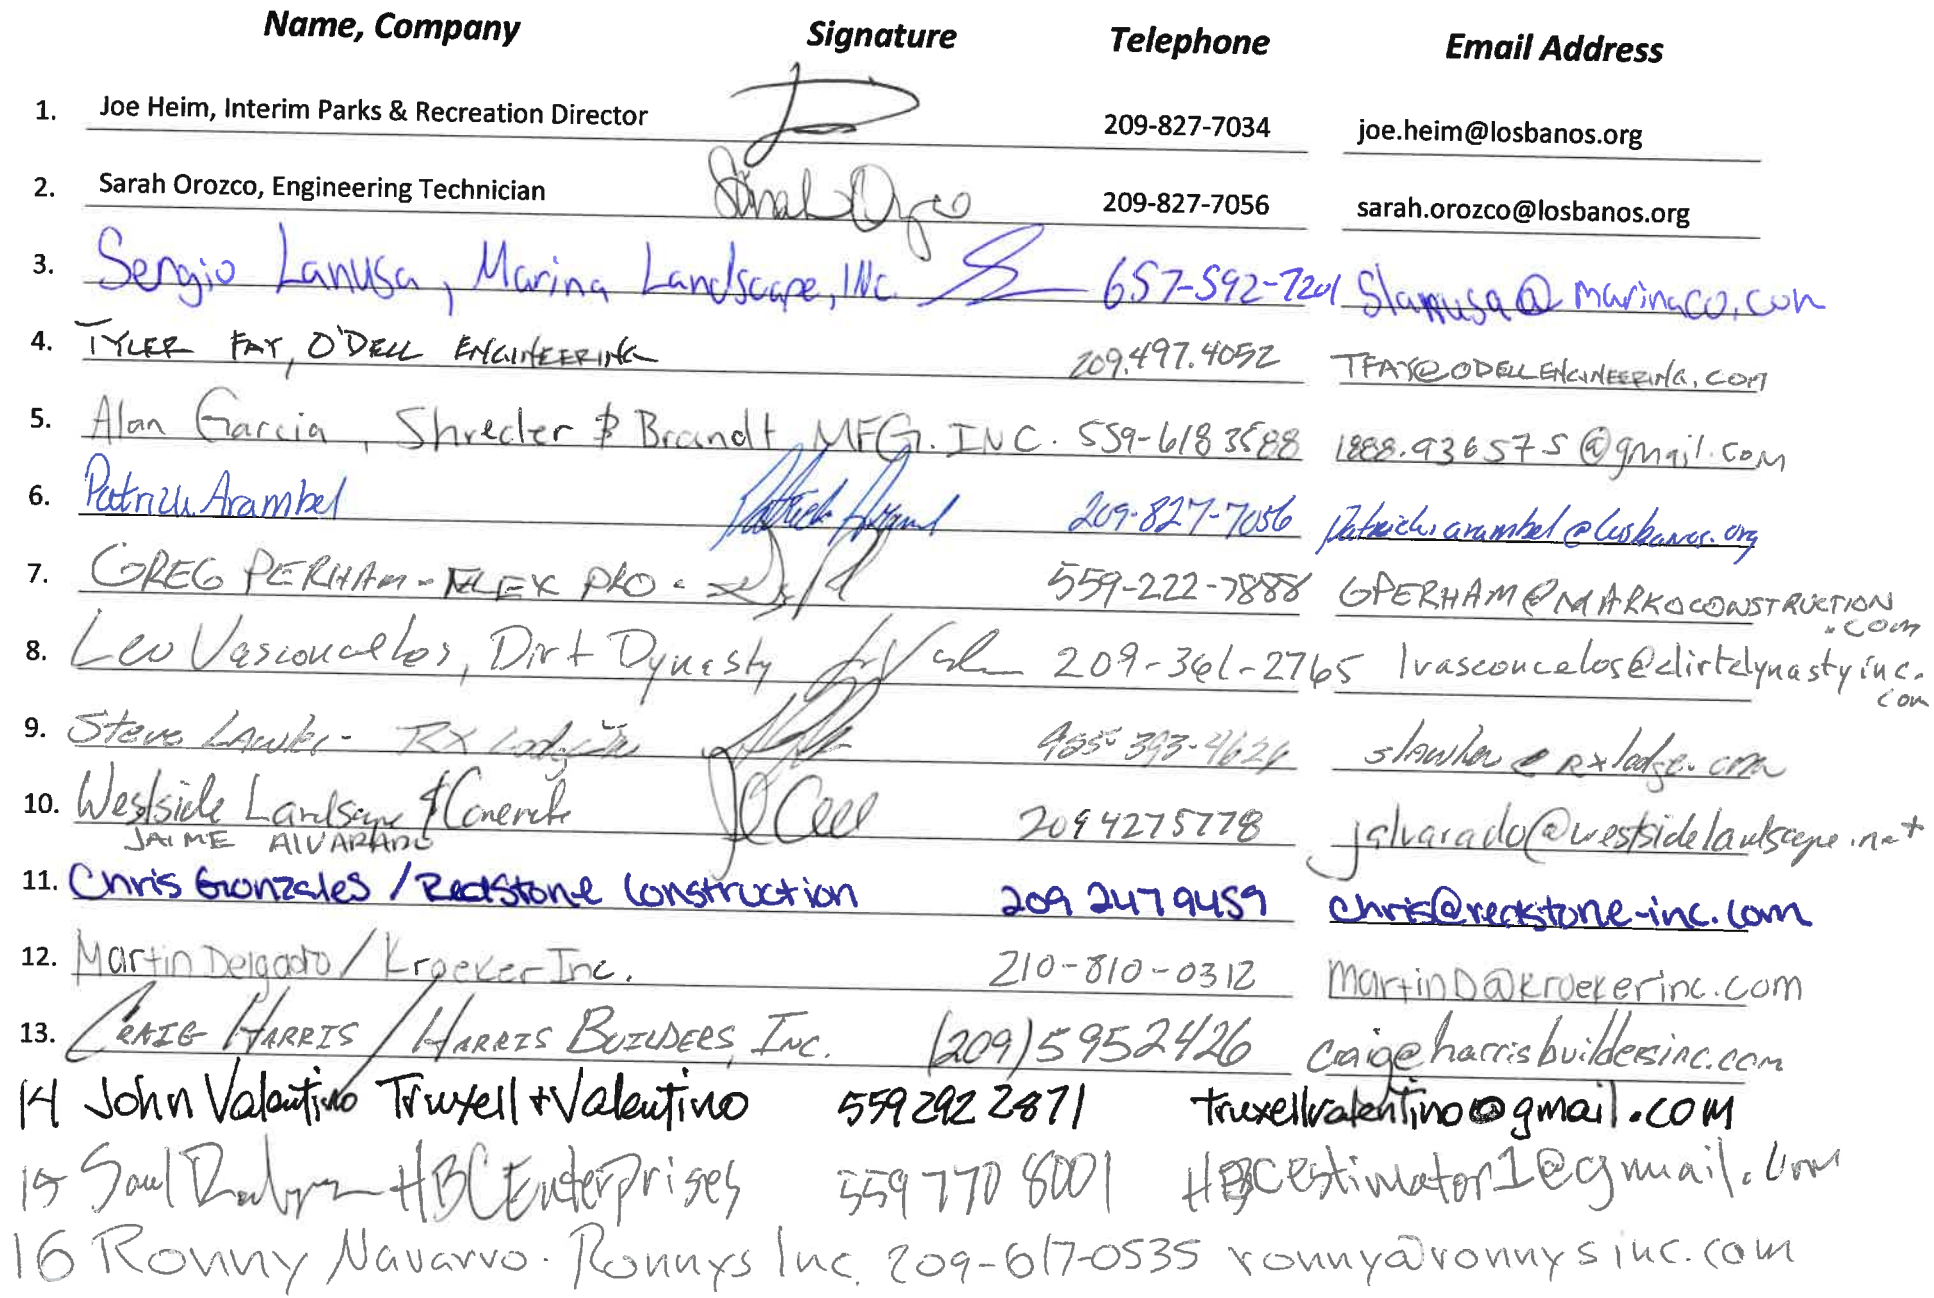 Name, Company Signature Telephone Email Address
1. Joe Heim, Interim Parks & Recreation Director 209-827-7034 joe.heim@losbanos.org
2. Sarah Orozco, Engineering Technician Sarah Orozco 209-827-7056 sarah.orozco@losbanos.org
3. Sergio Lanusa, Marina Landscape, INc. 657-592-7201 Slanusa@marinaco.com
4. TYLER FAY, O'DELL ENGINEERING 209.497.4052 TFAY@ODELLENGINEERING.COM
5. Alan Garcia, Shreder & Brandt MFG. INC. 559-618 3588 1888.936575@gmail.com
6. Patrick Arambel Patrick 209-827-7056 patrick.arambel@losbanos.org
7. GREG PERHAM - FLEX PRO - 559-222-7888 GPERHAM@MARKOCONSTRUCTION
.com
8. Leo Vasconcelos, Dirt Dynasty 209-361-2765 lvasconcelos@dirtdynastyinc.
com
9. Steve RX
10. Westside Landscape & Concrete 209 4275778 jalvarado@westsidelandscape.net
JAIME ALVARADO
11. Chris Gonzales / Redstone Construction 209 2479459 chris@redstone-inc.com
12. Martin Delgado / Kroeker Inc. 210-810-0312 MartinD@kroekerinc.com
13. CRAIG HARRIS / HARRIS BUILDERS, INC. (209) 5952426 craig@harrisbuildersinc.com
14 John Valentino Truxell + Valentino 559 292 2871 truxellvalentino@gmail.com
15 Saul HBC Enterprises 559 770 8001 HBCestimator1@gmail.com
16 Ronny Navarro. Ronnys Inc. 209-617-0535 ronny@ronnysinc.com